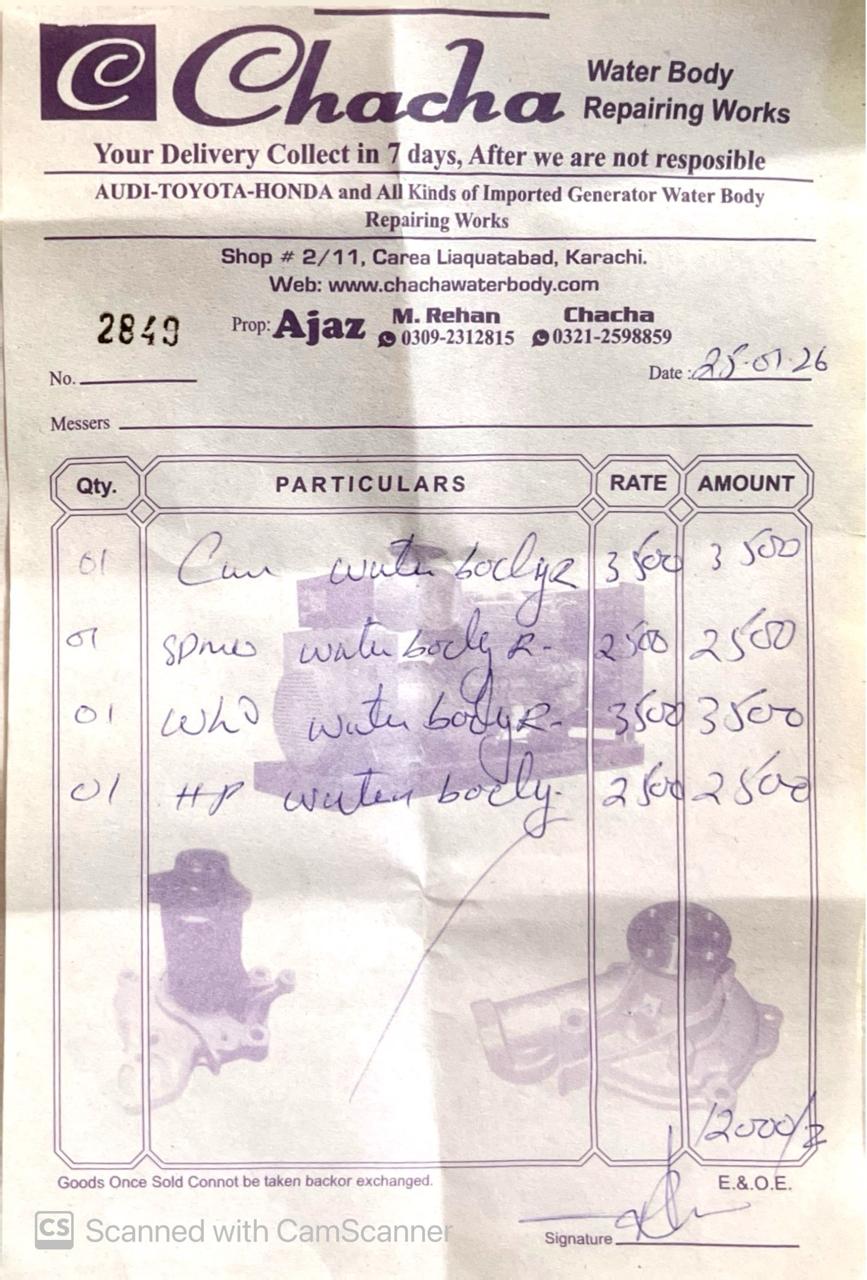 C Chacha Water Body
Repairing Works
Your Delivery Collect in 7 days, After we are not resposible
AUDI-TOYOTA-HONDA and All Kinds of Imported Generator Water Body
Repairing Works
Shop # 2/11, Carea Liaquatabad, Karachi.
Web: www.chachawaterbody.com
2849 Prop: Ajaz M. Rehan 0309-2312815 Chacha 0321-2598859
No. Date : 25-01-26
Messers
Qty. PARTICULARS RATE AMOUNT
01 water body R 3500 3500
01 water body R- 2500 2500
01 water body R- 3500 3500
01 HP water body. 2500 2500
12000/=
Goods Once Sold Connot be taken backor exchanged. E.&.O.E.
Signature
CS Scanned with CamScanner